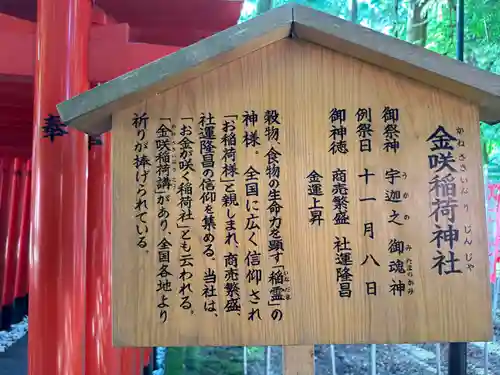 金咲稲荷神社
かねさきいなりじんじゃ
御祭神 宇迦之御魂神
うかのみたまのかみ
例祭日 十一月八日
御神徳 商売繁盛 社運隆昌
金運上昇
穀物、食物の生命力を顕す「稲霊」の
いなだま
神様。全国に広く信仰され
「お稲荷様」と親しまれ、商売繁盛、
社運隆昌の信仰を集める。当社は、
「お金が咲く稲荷社」とも云われる。
「金咲稲荷講」があり、全国各地より
祈りが捧げられている。
奉